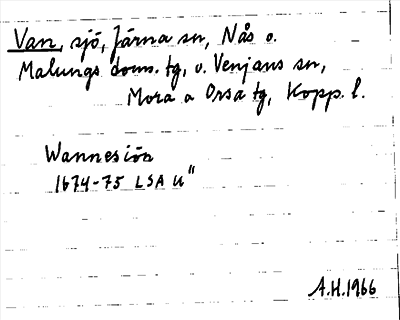 Van, sjö, Järna sn, Nås o.
Malungs doms. tg, o. Venjans sn,
Mora o Orsa tg, Kopp. l.
Wannesiön
1674-75 LSA U"
A.H. 1966